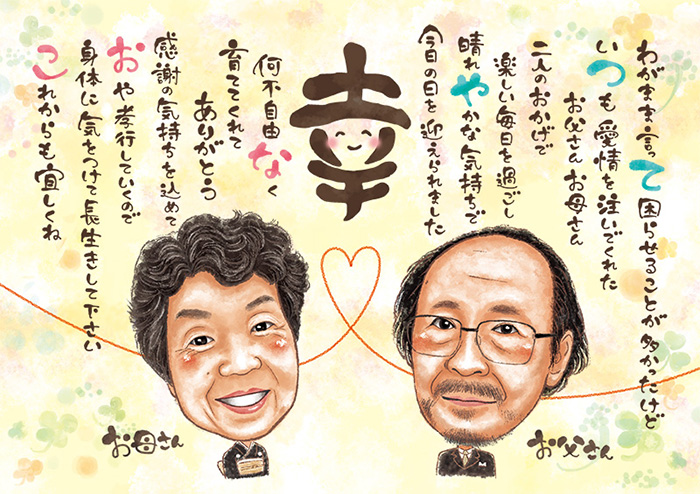 わがまま言って困らせることが多かったけど
いつも愛情を注いでくれた
お父さんお母さん
二人のおかげで
楽しい毎日を過ごし
晴れやかな気持ちで
今日の日を迎えられました
幸
何不自由なく
育ててくれて
ありがとう
感謝の気持ちを込めて
おや孝行していくので
身体に気をつけて長生きして下さい
これからも宜しくね
お母さん
お父さん